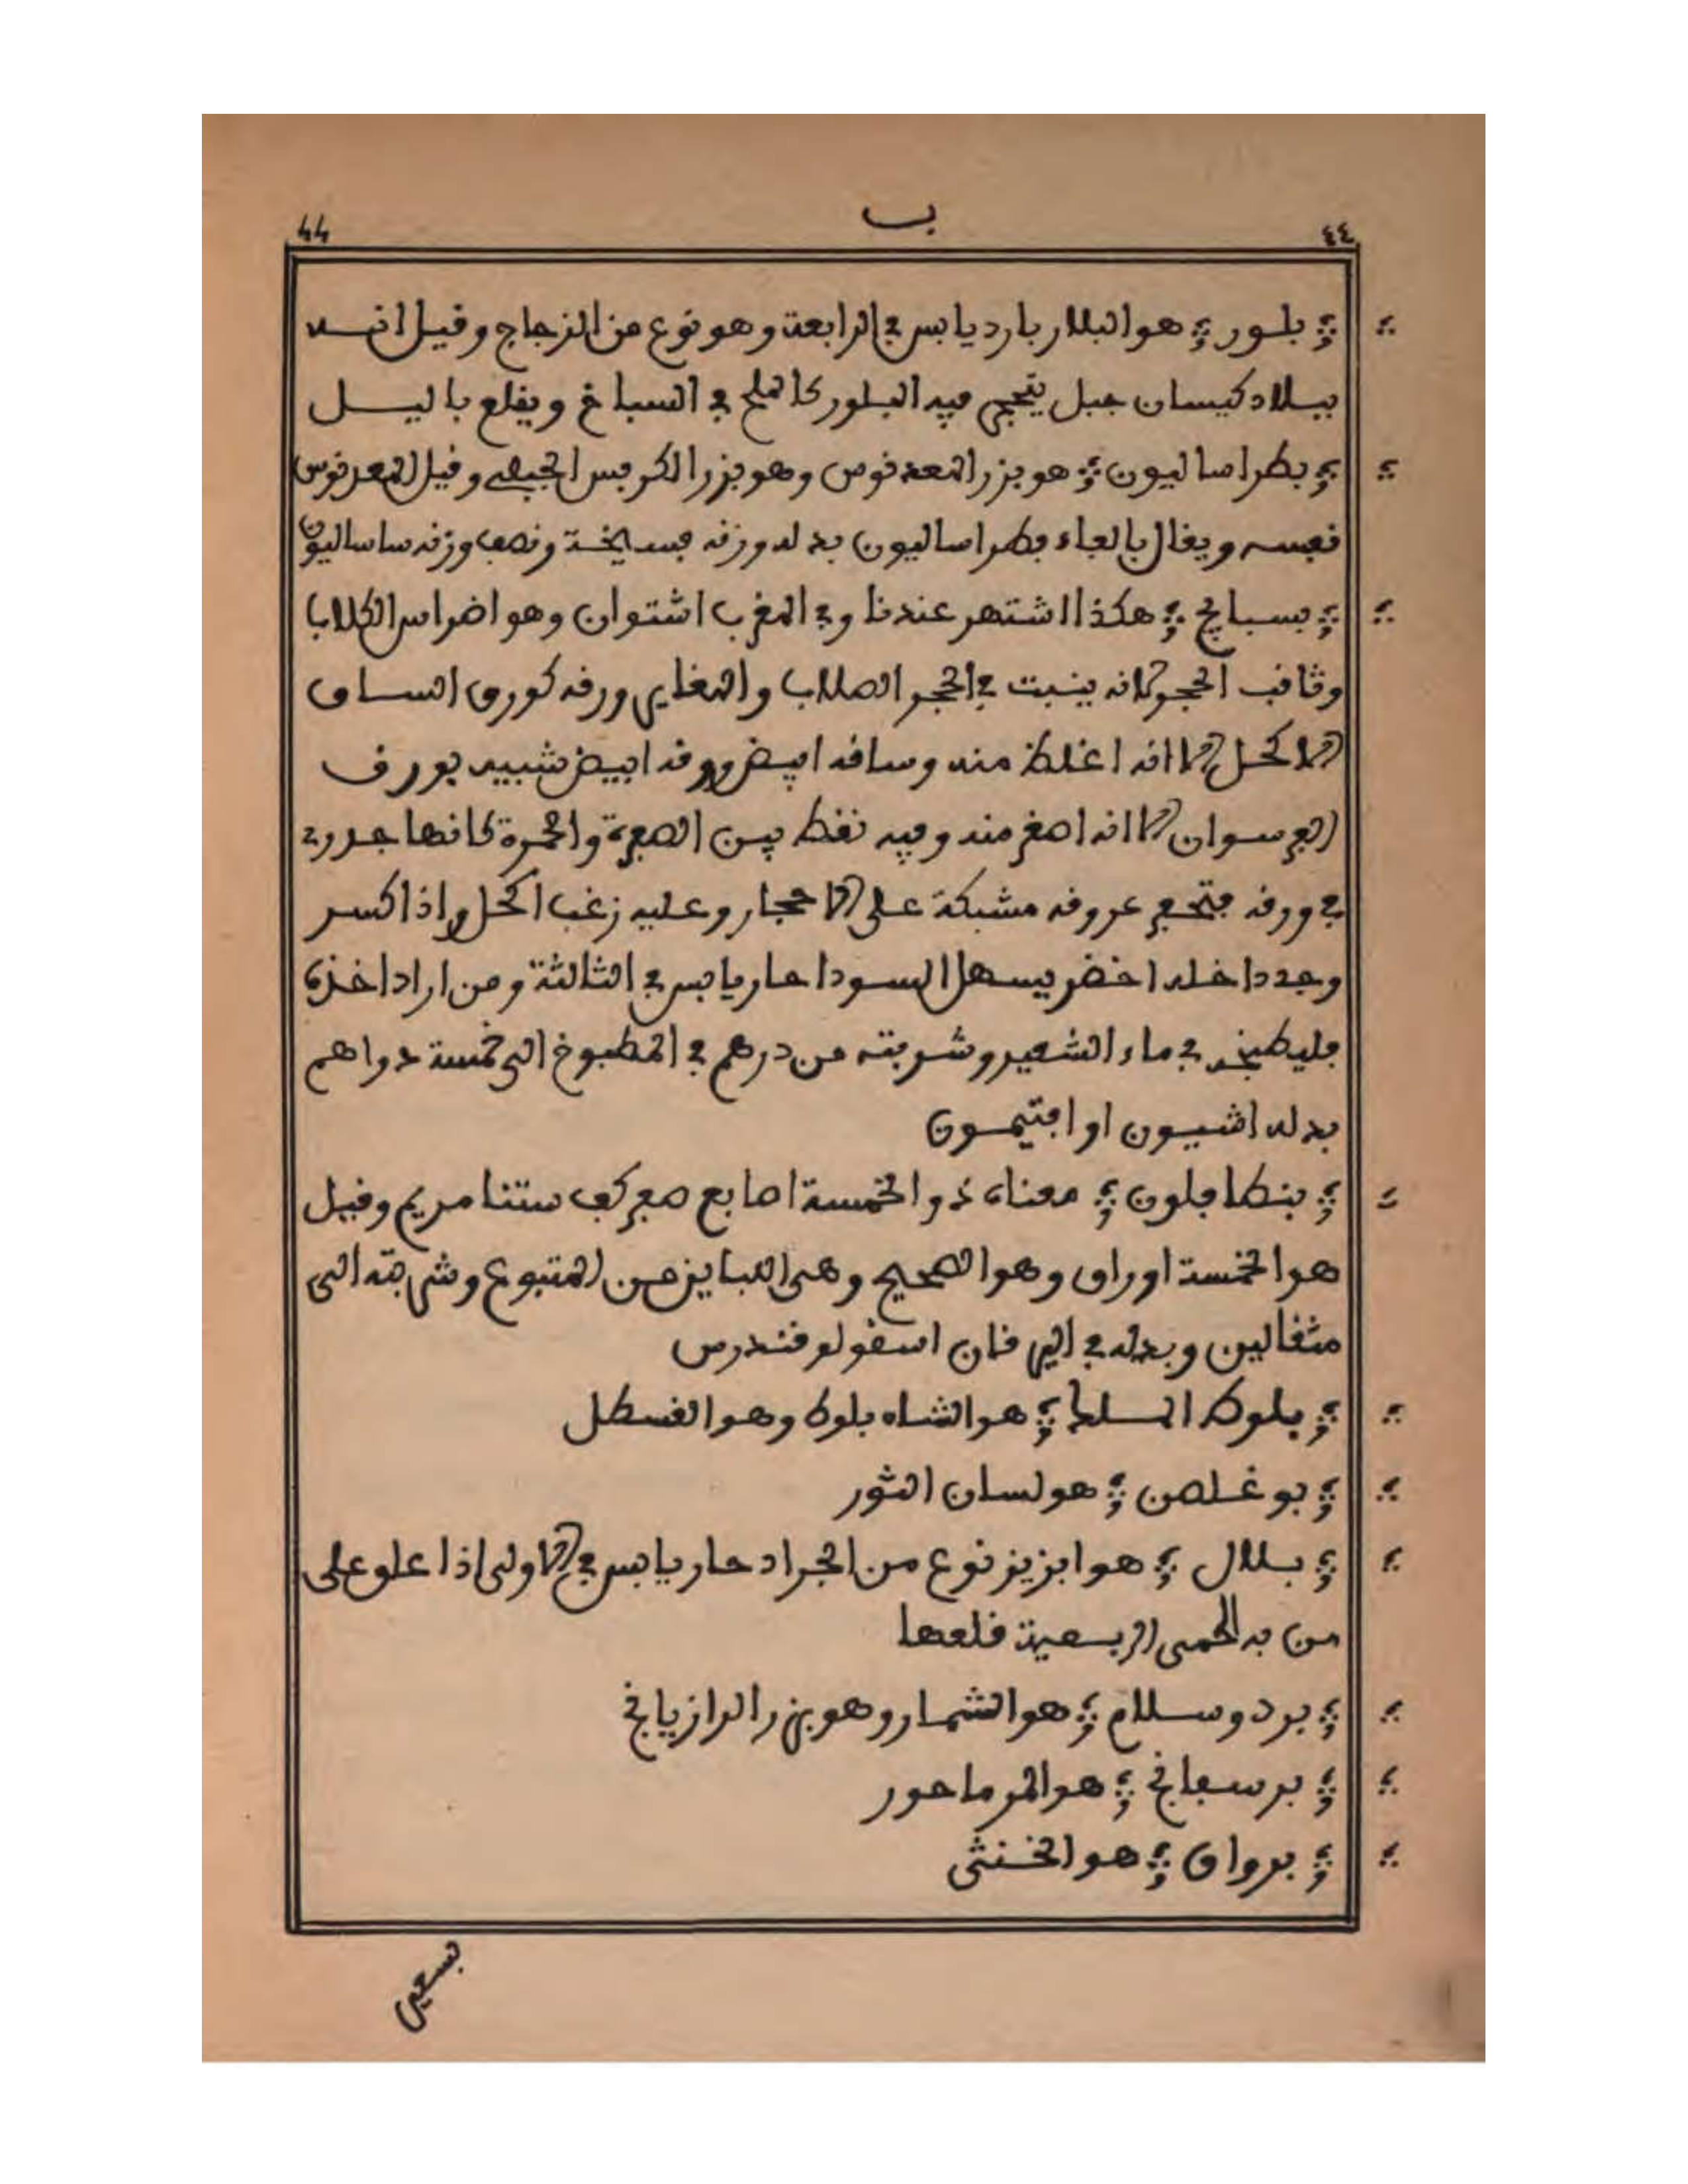 ٤٤ ب 44
بلور هو البلار بارد يابس في الرابعة وهو نوع من الزجاج وقيل انه
ببلاد كيسان جبل ينجم فيه البلور كالملح في السباخ ويقلع باليل
بطراساليون هو بزر المعدنوس وهو بزر الكرفس الجبلي وقيل المعدنوس
نفسه ويقال بالفاء فطراساليون بدله وزنه فسايخة ونصف وزنه ساساليون
بسبايج هكذا اشتهر عندنا وفي المغرب اشتوان وهو اضراس الكلاب
وثاقب الحجر لانه ينبت في الحجر الصلاب والمغاير ورقه كورق الساق
الاكحل الا انه اغلظ منه وساقه ابيض وورقه ابيض شبيه بورق
الفرسوان الا انه اصغر منه وفيه نقط بين الصفرة والحمرة كانها جدري
في ورقه عروقه مشبكة على الاحجار وعليه زغب اكحل واذا كسر
وجد داخله اخضر يسهل السودا حار يابس في الثالثة ومن اراد اخذه
فليطبخه في ماء الشعير وشربته من درهم في المطبوخ الى خمسة دراهم
بدله اشيون او افتيمون
بنطافلون معناه ذو الخمسة اصابع كف ستنا مريم وقيل
هو الخمسة اوراق وهو الصحيح وهي من المتبوع وشربته الى
مثقالين وبدله في اليرقان اسقولوقندرس
بلوط الملك هو الشاه بلوط وهو القسطل
بوغلصن هو لسان الثور
بلال هو ابزيز نوع من الجراد حار يابس في الاولى اذا علو على
من به الحمى الربعية قلعها
برد وسلام هو الشمار وهو بزر الرازيانج
برسفانج هو المرماحور
برواق هو الخنثى